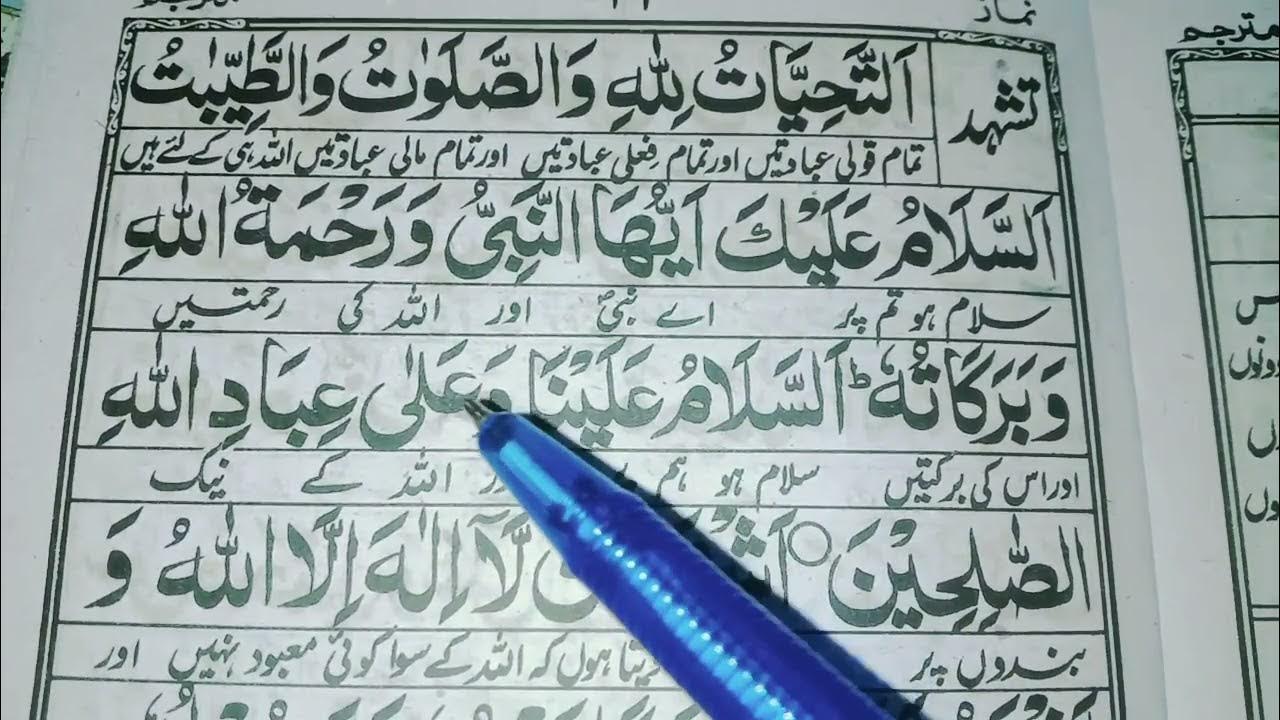 نماز
مترجم
تشہد
اَلتَّحِيَّاتُ لِلّٰهِ وَالصَّلَوٰتُ وَالطَّيِّبٰتُ
تمام قولی عبادتیں اور تمام فعلی عبادتیں اور تمام مالی عبادتیں اللہ ہی کے لئے ہیں
اَلسَّلَامُ عَلَيْكَ اَيُّهَا النَّبِىُّ وَرَحْمَةُ اللّٰهِ
سلام ہو تم پر اے نبیؐ اور اللہ کی رحمتیں
وَبَرَكَاتُهٗ ؕ اَلسَّلَامُ عَلَيْنَا وَعَلٰى عِبَادِ اللّٰهِ
اور اس کی برکتیں سلام ہو ہم اللہ کے نیک
الصّٰلِحِيْنَ ○ لَّآ اِلٰهَ اِلَّا اللّٰهُ وَ
بندوں پر ہوں کہ اللہ کے سوا کوئی معبود نہیں اور